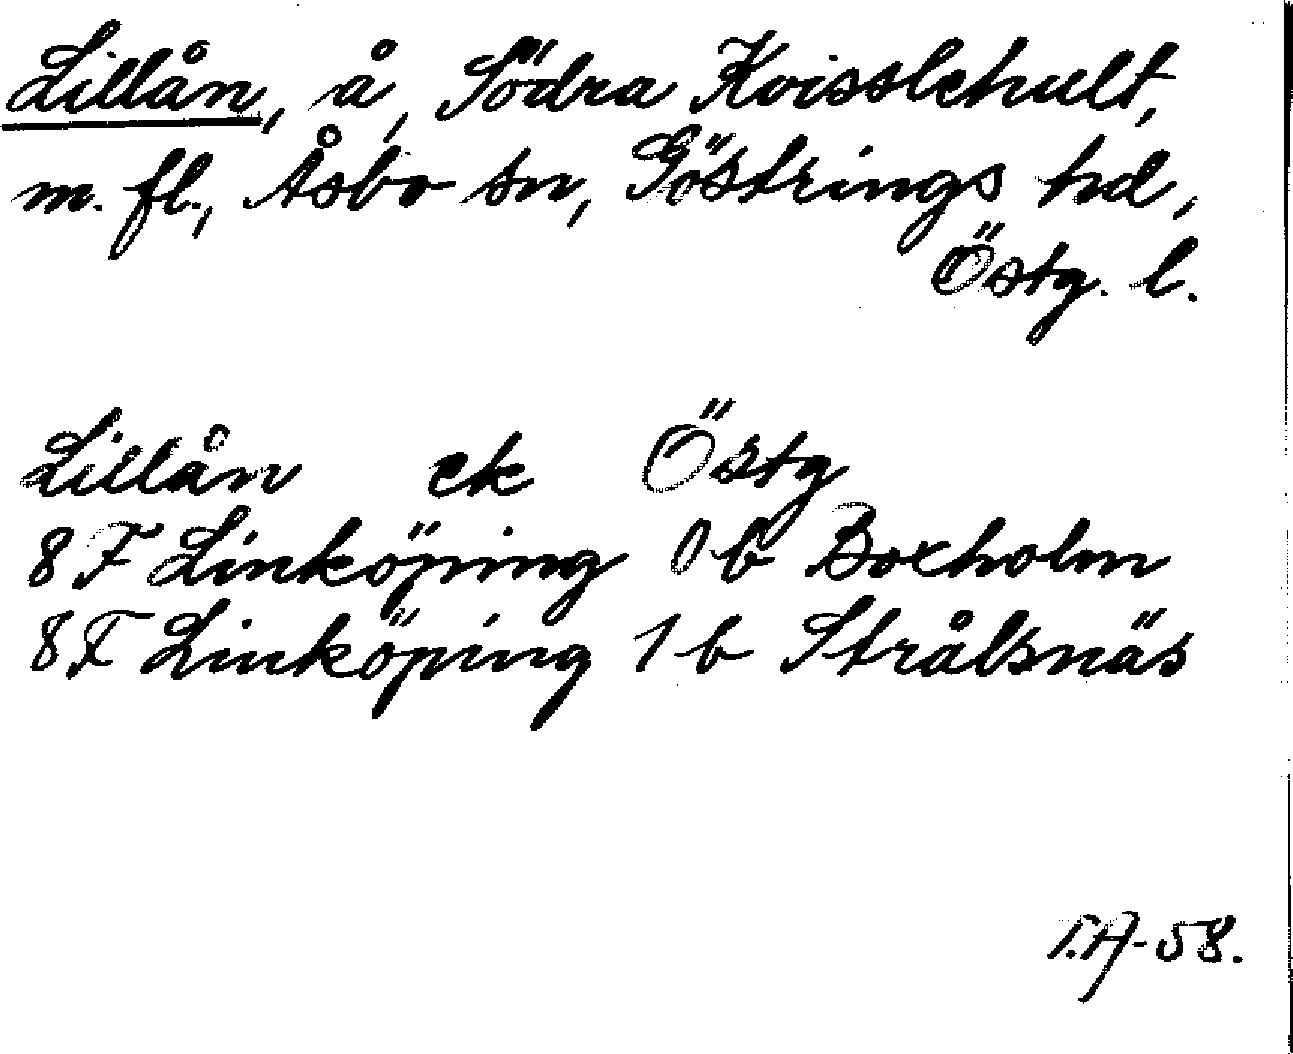 Lillån, å, Södra Kvisslehult,
m. fl., Åsbo sn, Göstrings hd,
Östg. l.
Lillån ek Östg
8 F Linköping 0 b Boxholm
8 F Linköping 1 b Strålsnäs
T.A-58.